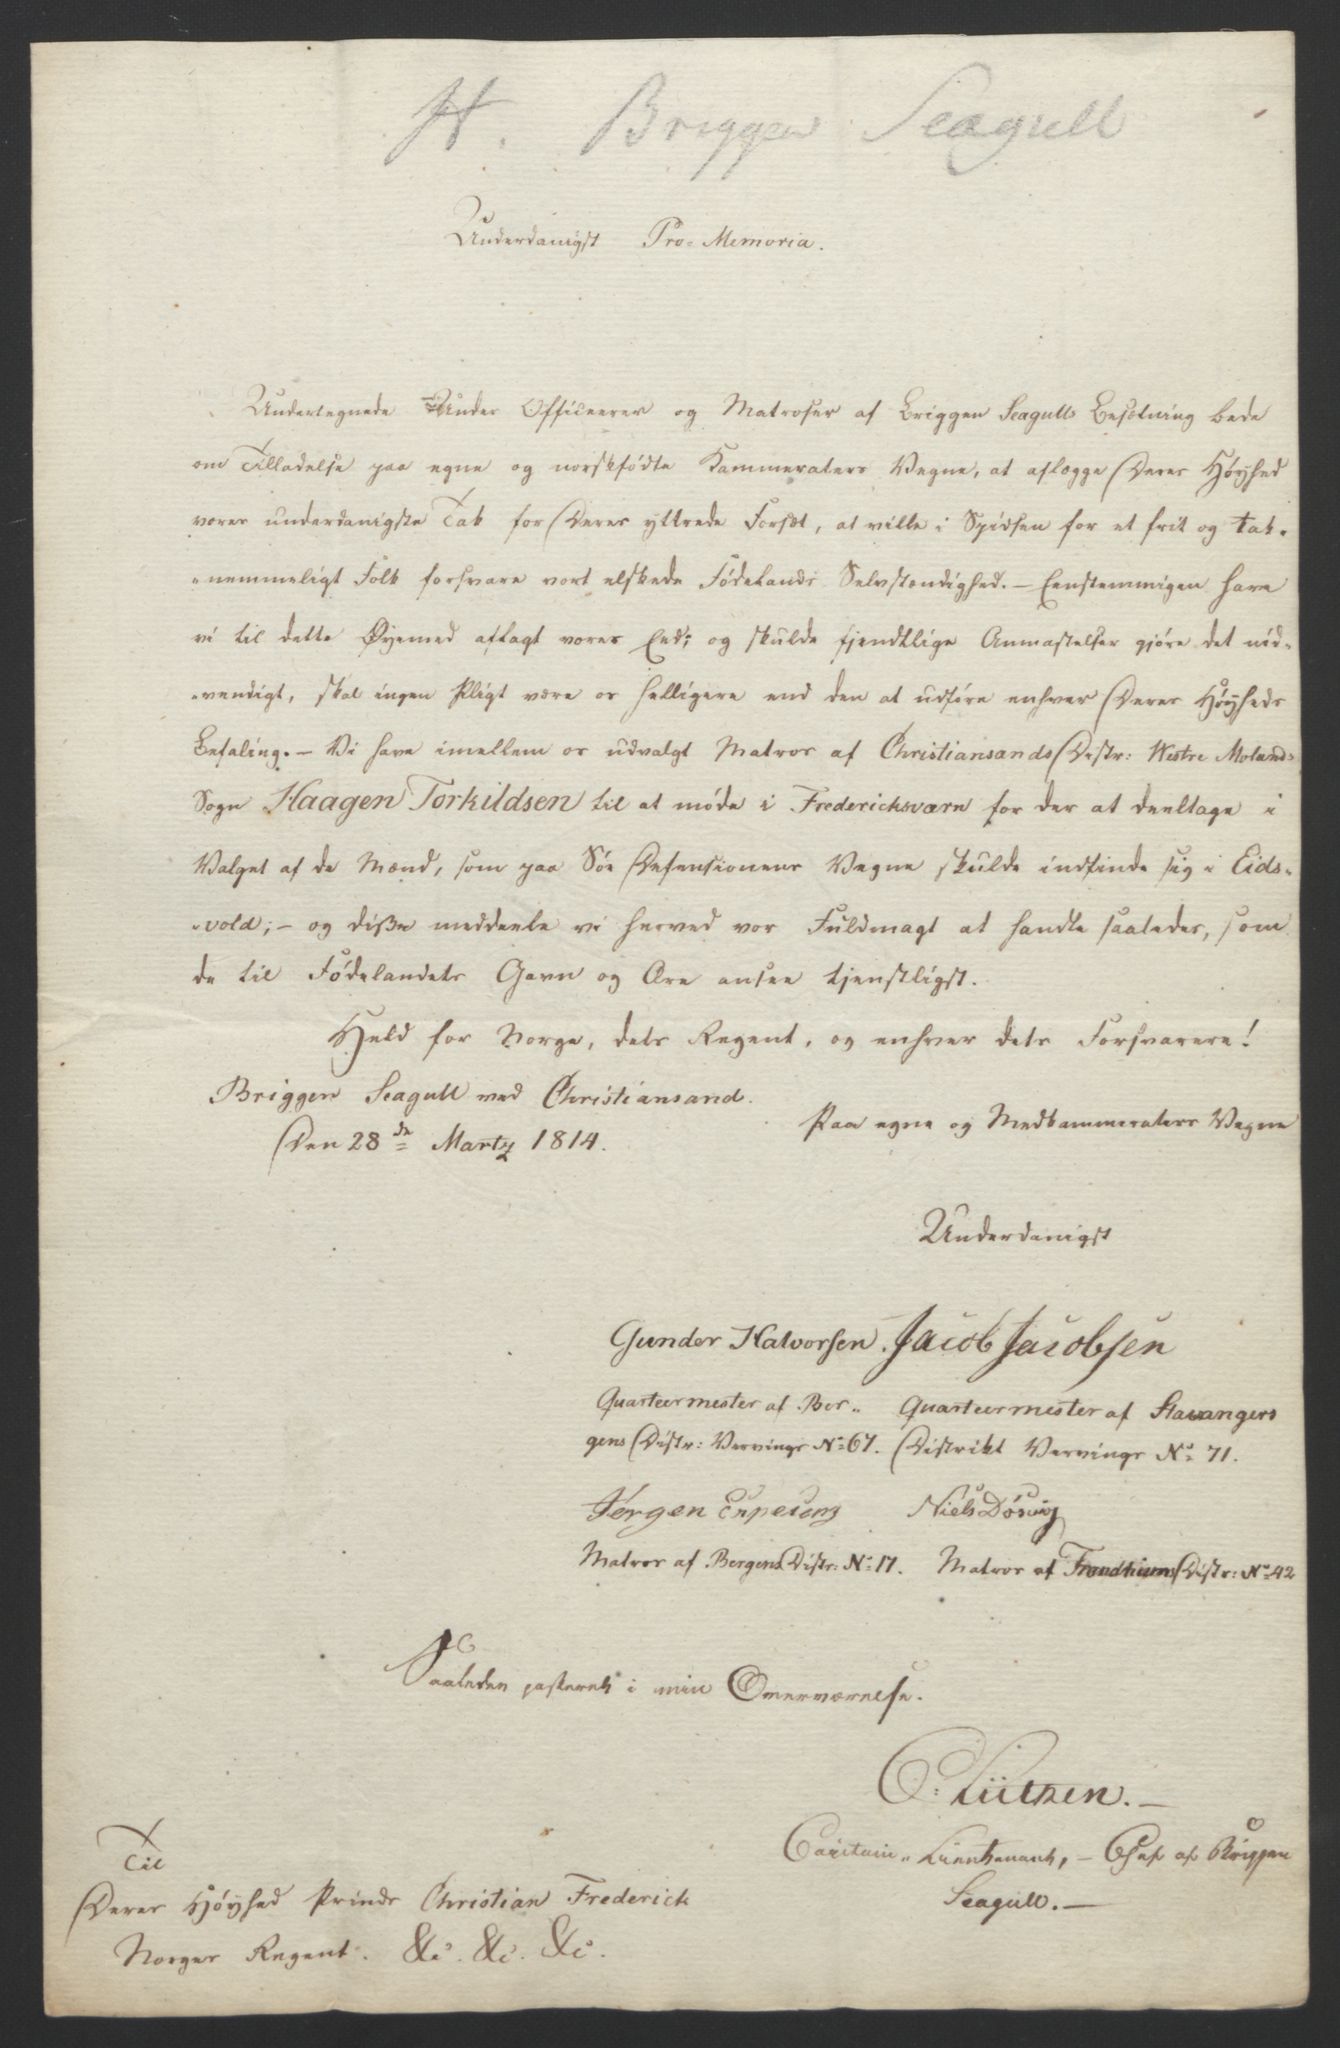 H. Briggen Seagull
Underdanigst Pro-Memoria.
Undertegnede Under Officeerer og Matroser af Briggen Seagulls Besætning bede
om Tilladelse paa egne og norskfødte Kammeraters Vegne, at aflægge Deres Høyhed
vores underdanigste Tak for Deres yttrede Forsæt, at ville i Spidsen for et frit og tak-
-nemmeligt Folk forsvare vort elskede Fødelands Selvstændighed. — Eenstemmigen have
vi til dette Øyemed aflagt vores Eed; og skulde fjendtlige Anmastelser gjöre det nöd-
-vendigt, skal ingen Pligt være os helligere end den at udföre enhver Deres Høyheds
Befaling. — Vi have imellem os udvalgt Matros af Christiansands Distr: Westre Molands
Sogn Haagen Torkildsen til at möde i Frederichsværn for der at deeltage i
Valget af de Mænd, som paa Söe Defensionens Vegne skulde indfinde sig i Eids-
-vold; — og disse meddeele vi herved vor Fuldmagt at handle saaledes, som
de til Födelandets Gavn og Ære ansee tjenstligst.
Held for Norge, dets Regent, og enhver dets Forsvarere!
Briggen Seagull ved Christiansand.
Den 28de Martz 1814.
Paa egne og Medkammeraters Vegne
Underdanigst
Gunder Halvorsen. Jacob Jacobsen
Quarteermester af Ber- Quarteermester af Stavangers
gens Distr: Vervings No 67. Distrikt Vervings No 71.
Jörgen Niels Dösvig
Matros af Bergens Distr: No 17. Matros af Trondhiems Distr: No 42
Saaledes passeret i min Overværelse.
C: Lütken. —
Capitain-Lieutenant, — Chef af Briggen
Seagull. —
Til
Deres Høyhed Prinds Christian Frederick
Norges Regent. &c. &c. &c.